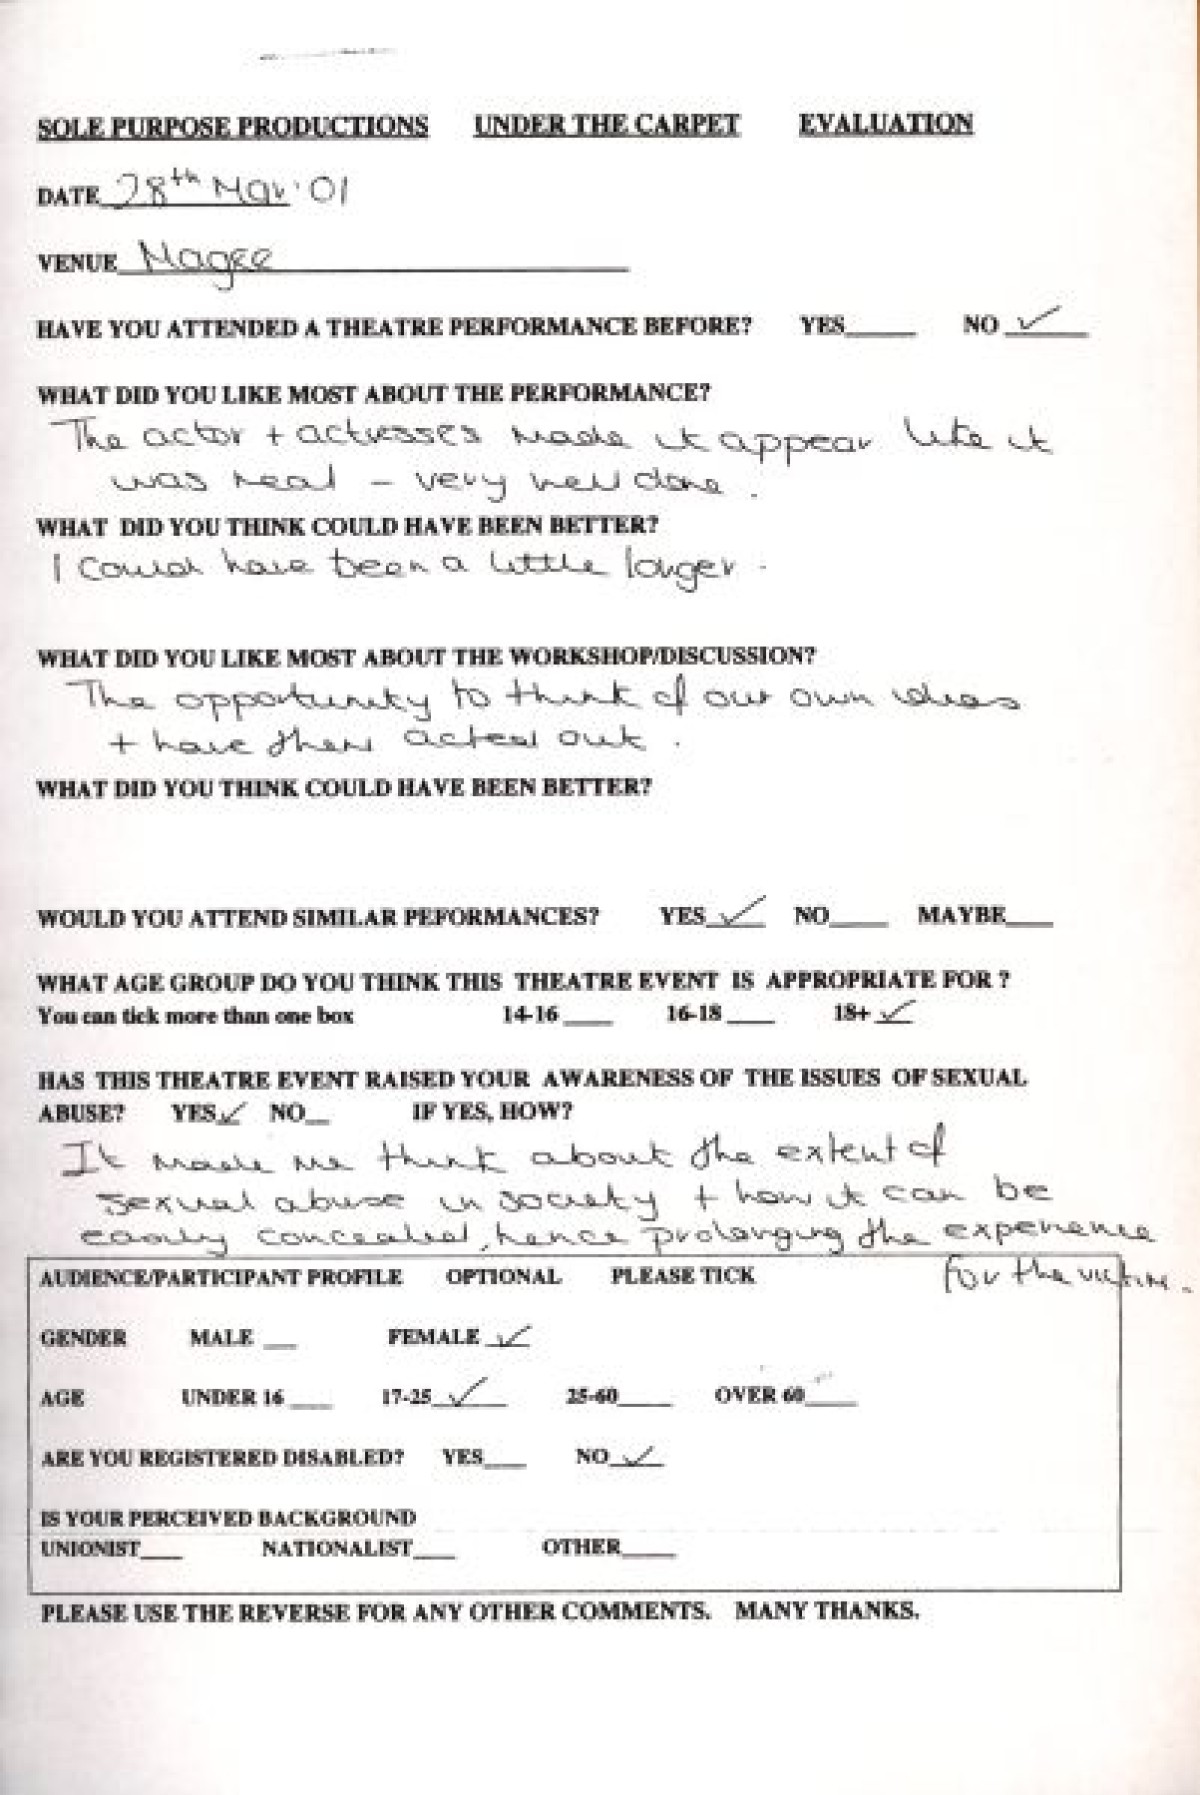 SOLE PURPOSE PRODUCTIONS UNDER THE CARPET EVALUATION
DATE 28th Mar '01
VENUE Magee
HAVE YOU ATTENDED A THEATRE PERFORMANCE BEFORE? YES____ NO ✓
WHAT DID YOU LIKE MOST ABOUT THE PERFORMANCE?
The actor + actresses made it appear like it
was real - very well done.
WHAT DID YOU THINK COULD HAVE BEEN BETTER?
I could have been a little longer.
WHAT DID YOU LIKE MOST ABOUT THE WORKSHOP/DISCUSSION?
The opportunity to think of our own ideas
+ have them acted out.
WHAT DID YOU THINK COULD HAVE BEEN BETTER?
WOULD YOU ATTEND SIMILAR PEFORMANCES? YES ✓ NO____ MAYBE____
WHAT AGE GROUP DO YOU THINK THIS THEATRE EVENT IS APPROPRIATE FOR ?
You can tick more than one box 14-16 ____ 16-18 ____ 18+ ✓
HAS THIS THEATRE EVENT RAISED YOUR AWARENESS OF THE ISSUES OF SEXUAL
ABUSE? YES ✓ NO__ IF YES, HOW?
It made me think about the extent of
sexual abuse in society + how it can be
easily concealed, hence prolonging the experience
for the victim.
AUDIENCE/PARTICIPANT PROFILE OPTIONAL PLEASE TICK
GENDER MALE __ FEMALE ✓
AGE UNDER 16 ___ 17-25 ✓ 25-60____ OVER 60____
ARE YOU REGISTERED DISABLED? YES___ NO ✓
IS YOUR PERCEIVED BACKGROUND
UNIONIST___ NATIONALIST___ OTHER____
PLEASE USE THE REVERSE FOR ANY OTHER COMMENTS. MANY THANKS.